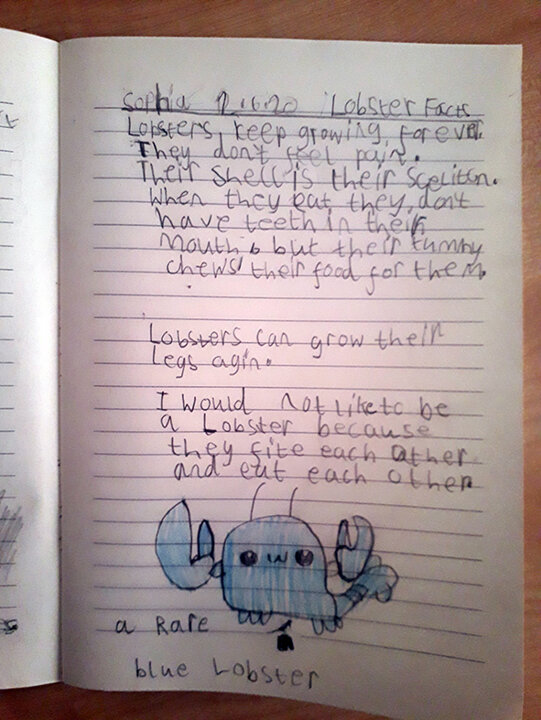 Sophia 2.6.20 Lobster Facts
Lobsters keep growing forever.
They don't feel pain.
Their shell is their Scelitton.
When they eat they don't
have teeth in their
mouth, but their tummy
chews their food for them.
Lobsters can grow their
legs agin.
I would not like to be
a Lobster because
they fite each other
and eat each other
a Rare
blue Lobster